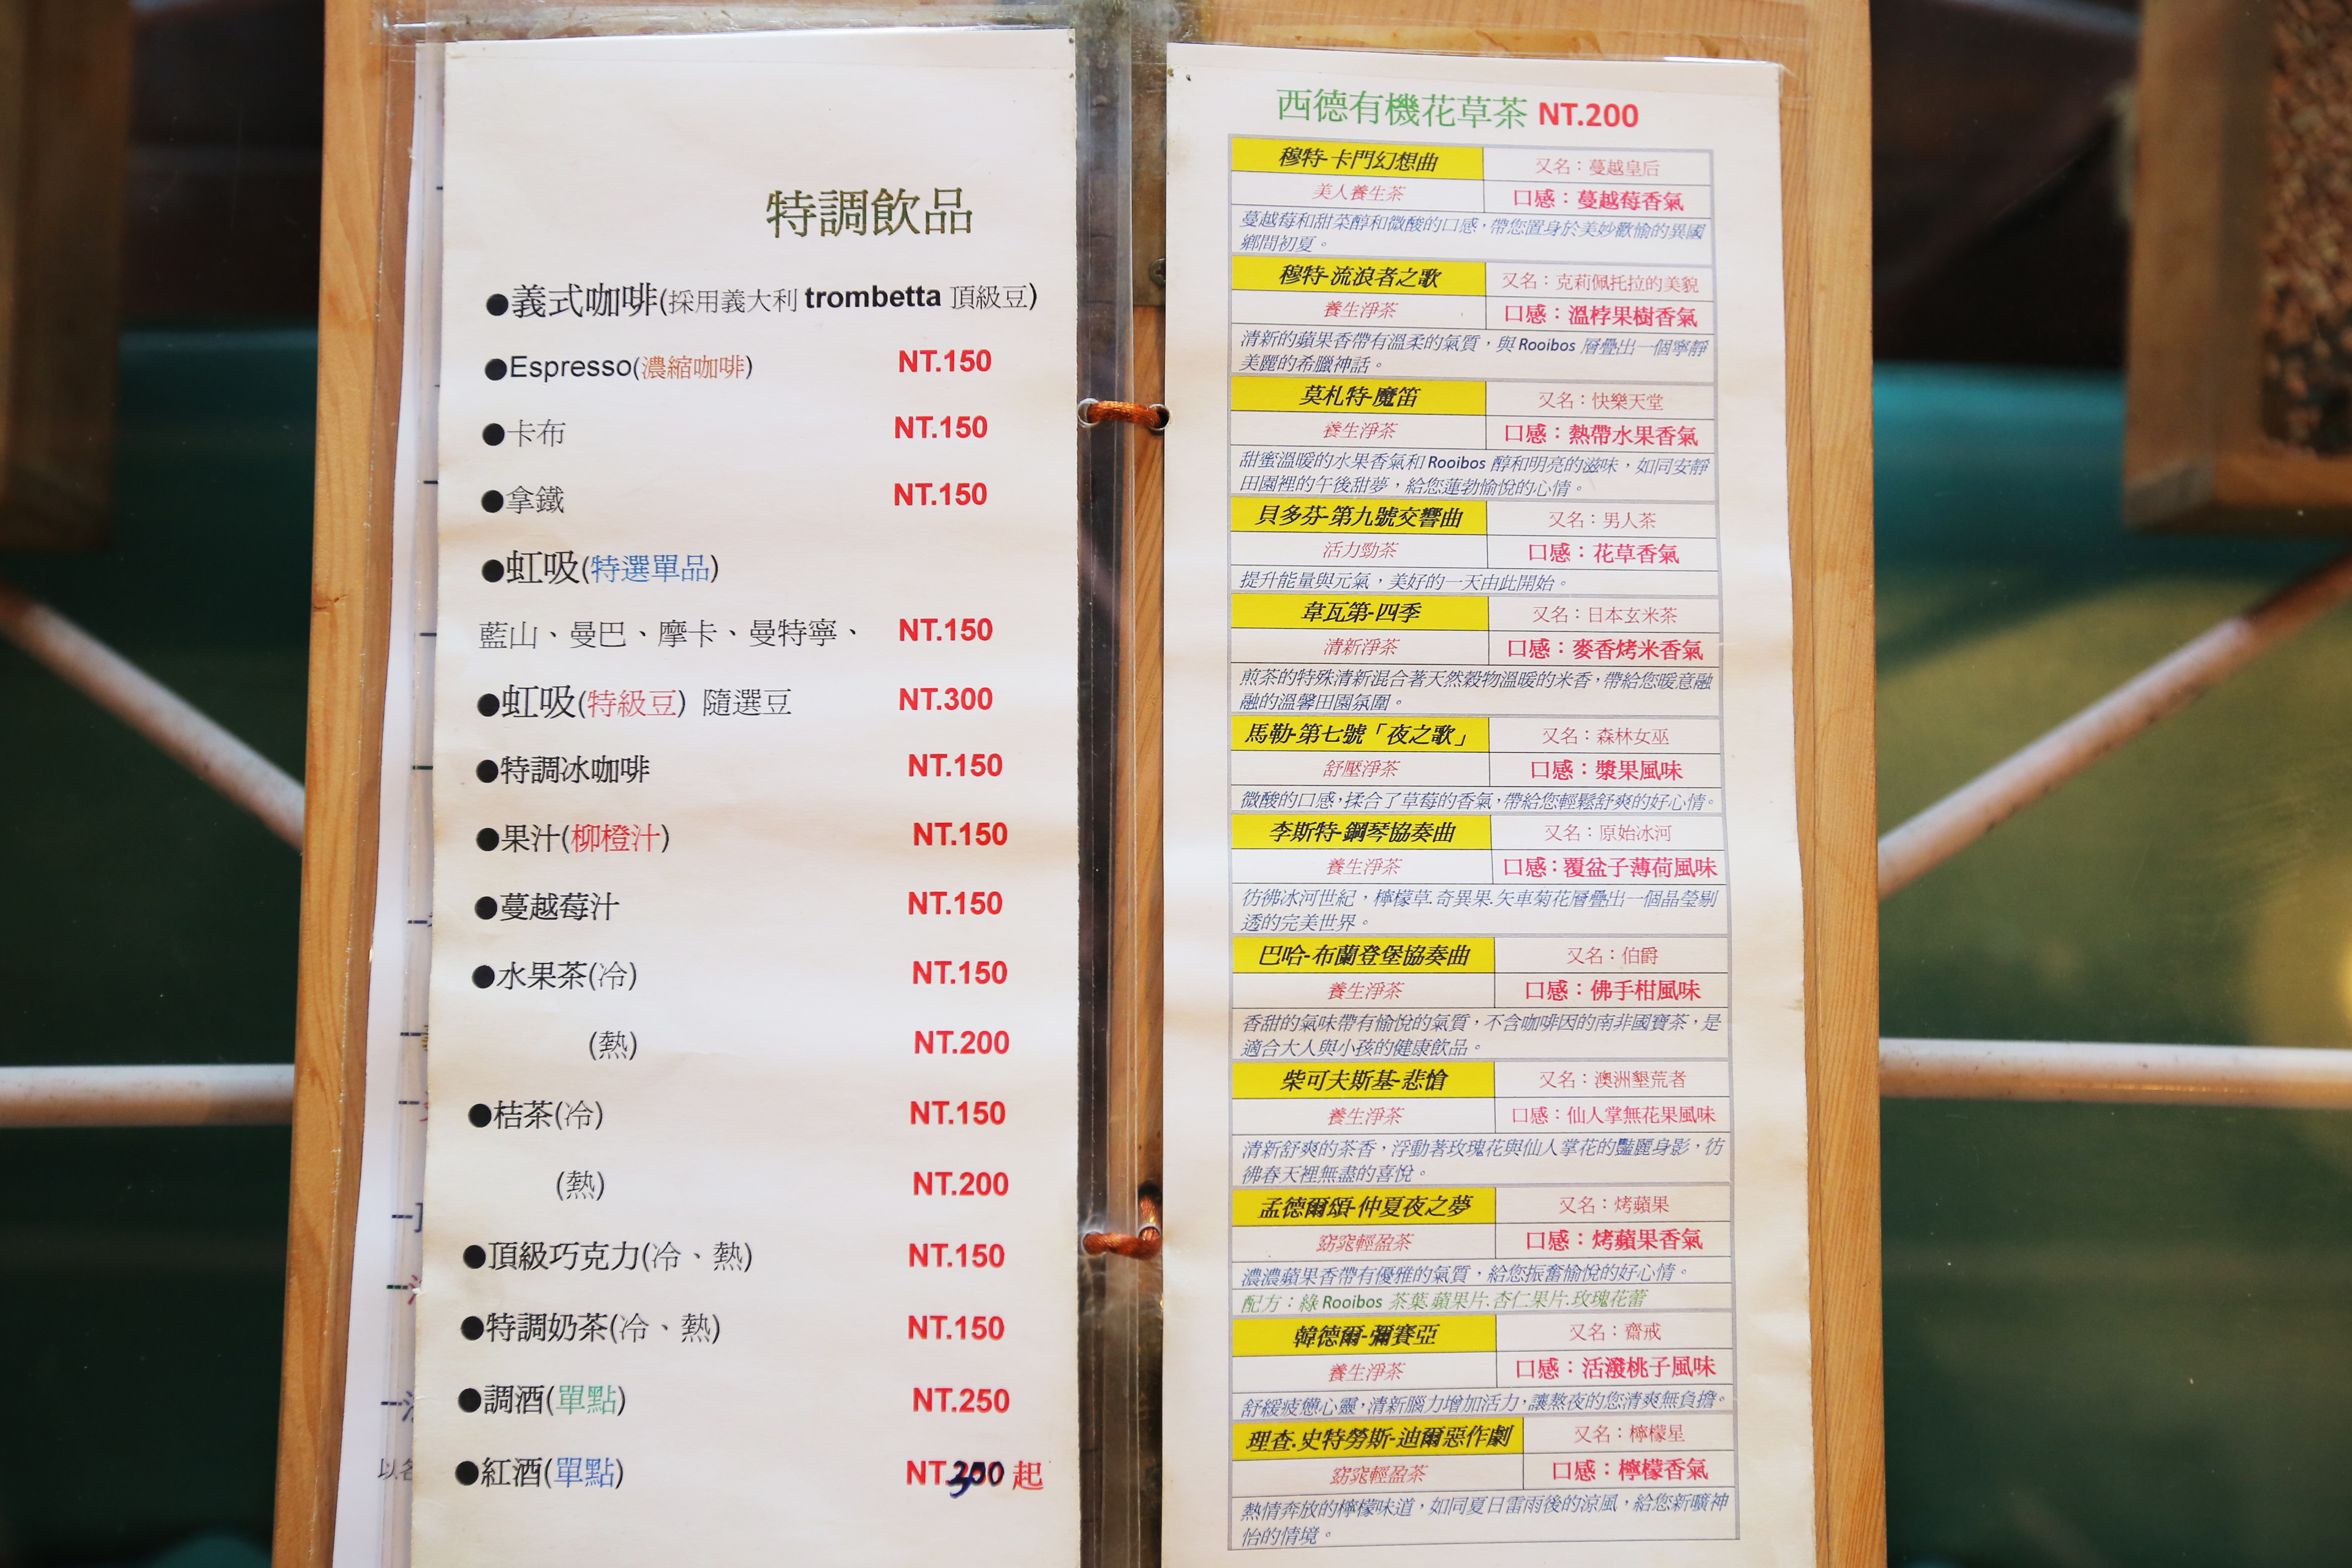 特調飲品
●義式咖啡(採用義大利 trombetta 頂級豆)
●Espresso(濃縮咖啡) NT.150
●卡布 NT.150
●拿鐵 NT.150
●虹吸(特選單品)
藍山、曼巴、摩卡、曼特寧、 NT.150
●虹吸(特級豆) 隨選豆 NT.300
●特調冰咖啡 NT.150
●果汁(柳橙汁) NT.150
●蔓越莓汁 NT.150
●水果茶(冷) NT.150
(熱) NT.200
●桔茶(冷) NT.150
(熱) NT.200
●頂級巧克力(冷、熱) NT.150
●特調奶茶(冷、熱) NT.150
●調酒(單點) NT.250
●紅酒(單點) NT.300 起
西德有機花草茶 NT.200
穆特-卡門幻想曲 又名：蔓越皇后
美人養生茶 口感：蔓越莓香氣
蔓越莓和甜菜醇和微酸的口感，帶您置身於美妙歡愉的異國
鄉間初夏。
穆特-流浪者之歌 又名：克莉佩托拉的美貌
養生淨茶 口感：溫桲果樹香氣
清新的蘋果香帶有溫柔的氣質，與 Rooibos 層疊出一個寧靜
美麗的希臘神話。
莫札特-魔笛 又名：快樂天堂
養生淨茶 口感：熱帶水果香氣
甜蜜溫暖的水果香氣和 Rooibos 醇和明亮的滋味，如同安靜
田園裡的午後甜夢，給您蓮勃愉悅的心情。
貝多芬-第九號交響曲 又名：男人茶
活力勁茶 口感：花草香氣
提升能量與元氣，美好的一天由此開始。
韋瓦第-四季 又名：日本玄米茶
清新淨茶 口感：麥香烤米香氣
煎茶的特殊清新混合著天然穀物溫暖的米香，帶給您暖意融
融的溫馨田園氛圍。
馬勒-第七號「夜之歌」 又名：森林女巫
舒壓淨茶 口感：漿果風味
微酸的口感，揉合了草莓的香氣，帶給您輕鬆舒爽的好心情。
李斯特-鋼琴協奏曲 又名：原始冰河
養生淨茶 口感：覆盆子薄荷風味
彷彿冰河世紀，檸檬草.奇異果.矢車菊花層疊出一個晶瑩剔
透的完美世界。
巴哈-布蘭登堡協奏曲 又名：伯爵
養生淨茶 口感：佛手柑風味
香甜的氣味帶有愉悅的氣質，不含咖啡因的南非國寶茶，是
適合大人與小孩的健康飲品。
柴可夫斯基-悲愴 又名：澳洲墾荒者
養生淨茶 口感：仙人掌無花果風味
清新舒爽的茶香，浮動著玫瑰花與仙人掌花的豔麗身影，彷
彿春天裡無盡的喜悅。
孟德爾頌-仲夏夜之夢 又名：烤蘋果
窈窕輕盈茶 口感：烤蘋果香氣
濃濃蘋果香帶有優雅的氣質，給您振奮愉悅的好心情。
配方：綠 Rooibos 茶葉.蘋果片.杏仁果片.玫瑰花蕾
韓德爾-彌賽亞 又名：齋戒
養生淨茶 口感：活潑桃子風味
舒緩疲憊心靈，清新腦力增加活力，讓熬夜的您清爽無負擔。
理查.史特勞斯-迪爾惡作劇 又名：檸檬星
窈窕輕盈茶 口感：檸檬香氣
熱情奔放的檸檬味道，如同夏日雷雨後的涼風，給您新曠神
怡的情境。